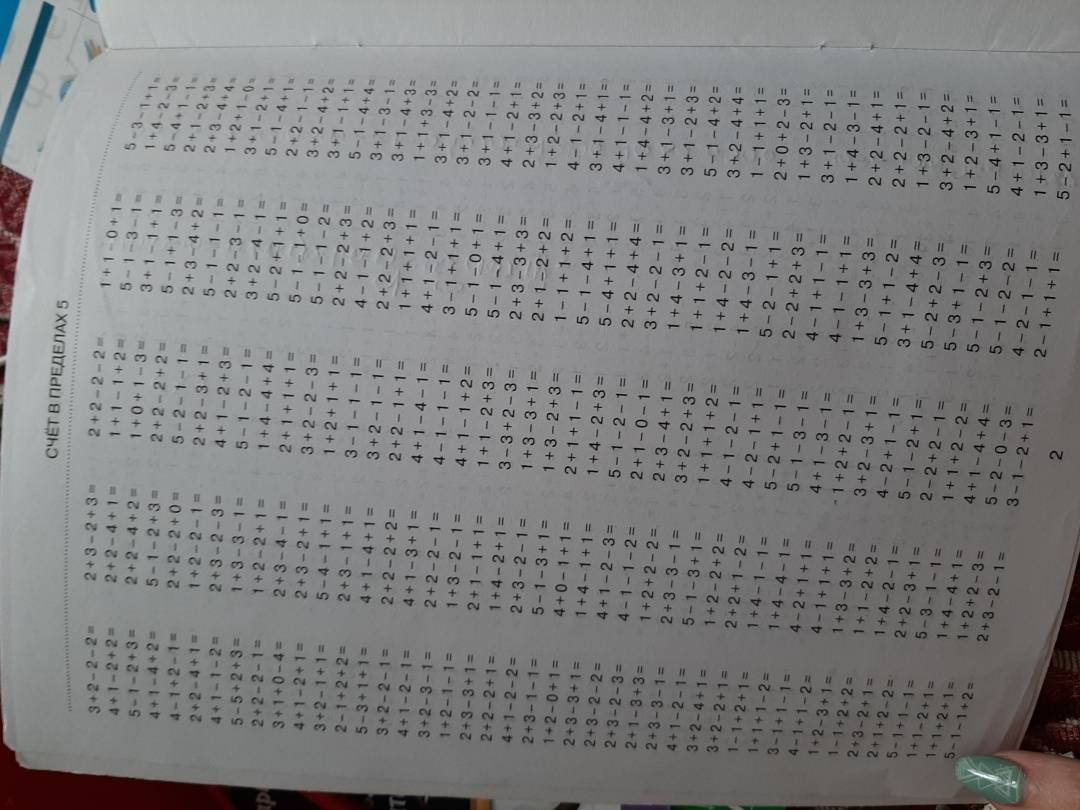 СЧЁТ В ПРЕДЕЛАХ 5
3+2-2-2=
4+1-2+2=
5-1-2+3=
4+1-4+2=
4-1+2-1=
2+2-4+1=
4+1-1-2=
5-5+2+3=
2+2-2-1=
3+1+0-4=
4+1-2+1=
3+2-1+1=
2-1+2+2=
5-3+1+1=
3+2-2-1=
4+1-2-1=
3+2-3-1=
1+2-1-1=
2+3-3+1=
2+2-2+1=
4+1-2-2=
2+3-1-1=
1+2-0+1=
2+3-3+1=
2+3-2-2=
2+3-2-3=
2+1-3+3=
2+3-3-1=
4+1-2-1=
3+2-4+1=
3+2-2+1=
1-1+2+1=
1+1+1-2=
3-1+1-1=
4-1+1-2=
1+2-3+1=
1-1+2+2=
2+3-2+1=
2+1+2-2=
5-1+1-1=
1+1-2+1=
1+1+2+1=
5-1-1+2=
2+3-2+3=
2+2-4+1=
2+2-4+2=
5-1-2+3=
2+2-2+0=
1+2-2-1=
2+3-2-3=
1+3-3-1=
1+2-2+1=
2+3-4-1=
2+3-2+1=
5-4-1+1=
2+3-1+1=
4+1-4+1=
2+2-2+2=
4+1-3+1=
2+2-2-1=
1+3-2-1=
2+1-1+1=
1+4-2+1=
2+3-2-1=
5-1-3+1=
4+0-1+1=
1+4-1+1=
4+1-2-3=
4-1-1-2=
1+2+2-2=
2+3-3-1=
5-1-3+1=
1+2-2+2=
2+2+1-2=
1+4-1-1=
1+4-4-1=
4-2+1+1=
4-1+1+1=
1+3-3+2=
1+1-2+2=
1+4-2-1=
2+2-3+1=
5-3-1-1=
1+4-4+1=
1+2+2-3=
2+3-2-1=
2+2-2-2=
1+1-1+2=
1+0+1-3=
2+2-2+2=
5-2-1-1=
2+2-3+1=
4+1-2+3=
5-1-2-1=
1+4-4+4=
2+1+1+1=
3+2-2-3=
1+2+1+1=
3-1-1-1=
3+2-1-1=
2+2-1+1=
4+1-4-1=
4-1-1-1=
4+1-1+2=
1+1-2+3=
3-3+2-3=
1+3-3+1=
1+3-2+3=
2+1+1-1=
1+4-2+3=
5-1-2-1=
2+1-0-1=
2+3-4+1=
3+2-2+3=
1+1+1+2=
4-1-2-1=
4-2-1+1=
5-2+1-1=
5-1-3-1=
4+1-3-1=
-1+2+2-1=
3+2-3+1=
4-2+1-1=
5-1-2+1=
2-2+2-1=
1+1+2-2=
4+1-4+4=
5-2-0-3=
3-1-2+1=
1+1-0+1=
5-1-3-1=
3+1-1+1=
5-1+1-3=
2+3-4+2=
5-1-1-1=
2+2-3-1=
3+2-4-1=
5-2+1+1=
5-1-1+0=
5-1-1-2=
2+2-2+3=
4-1-1+2=
2+2-2+3=
1+1+1+1=
4+1-2-1=
3-1+1+1=
5-1-0+1=
5-1-4+1=
2+3-3+3=
2+1-2+2=
1-1+1+2=
5-1-4+1=
5-4+1+1=
2+2-4+4=
3+2-2-1=
1+4-3+1=
1+1+2-1=
1+4-2-2=
1+4-3-1=
5-2-1+1=
2-2+2+3=
4-1+1-1=
4-1-1+1=
1+3-3+3=
5-1+1-2=
3+1-4+4=
5-2+2-3=
5-3+1-1=
5-1-2+3=
5-1-2-2=
4-2-1-1=
2-1+1+1=
5-3-1+1=
1+4-2-3=
5-4+1-1=
2+1-2+3=
2+3-4+4=
1+2+1-0=
3+1-2+1=
5-1-4+1=
2+2-1-1=
3+2-4+2=
3+1-1+1=
5-1-4+4=
3+1-3-1=
3+1-4+3=
1+1+3-3=
3+1-4+2=
3+1-2-2=
3+1-1-1=
4+1-2+1=
2+3-3+2=
1+2-2+3=
4-1-2+1=
3+1-4+1=
4+1-1-1=
1+4-4+2=
3+1-3+1=
3+1-2+3=
5-1-4+2=
3+2-4+4=
1-1+1+1=
2+0+2-3=
1+3-2+1=
3+1-2-1=
1+4-3-1=
2+2-4+1=
2+2-2+1=
1+3-2-1=
3+2-4+2=
1+2-3+1=
5-4+1-1=
4+1-2-1=
1+3-3+1=
5-2+1-1=
2